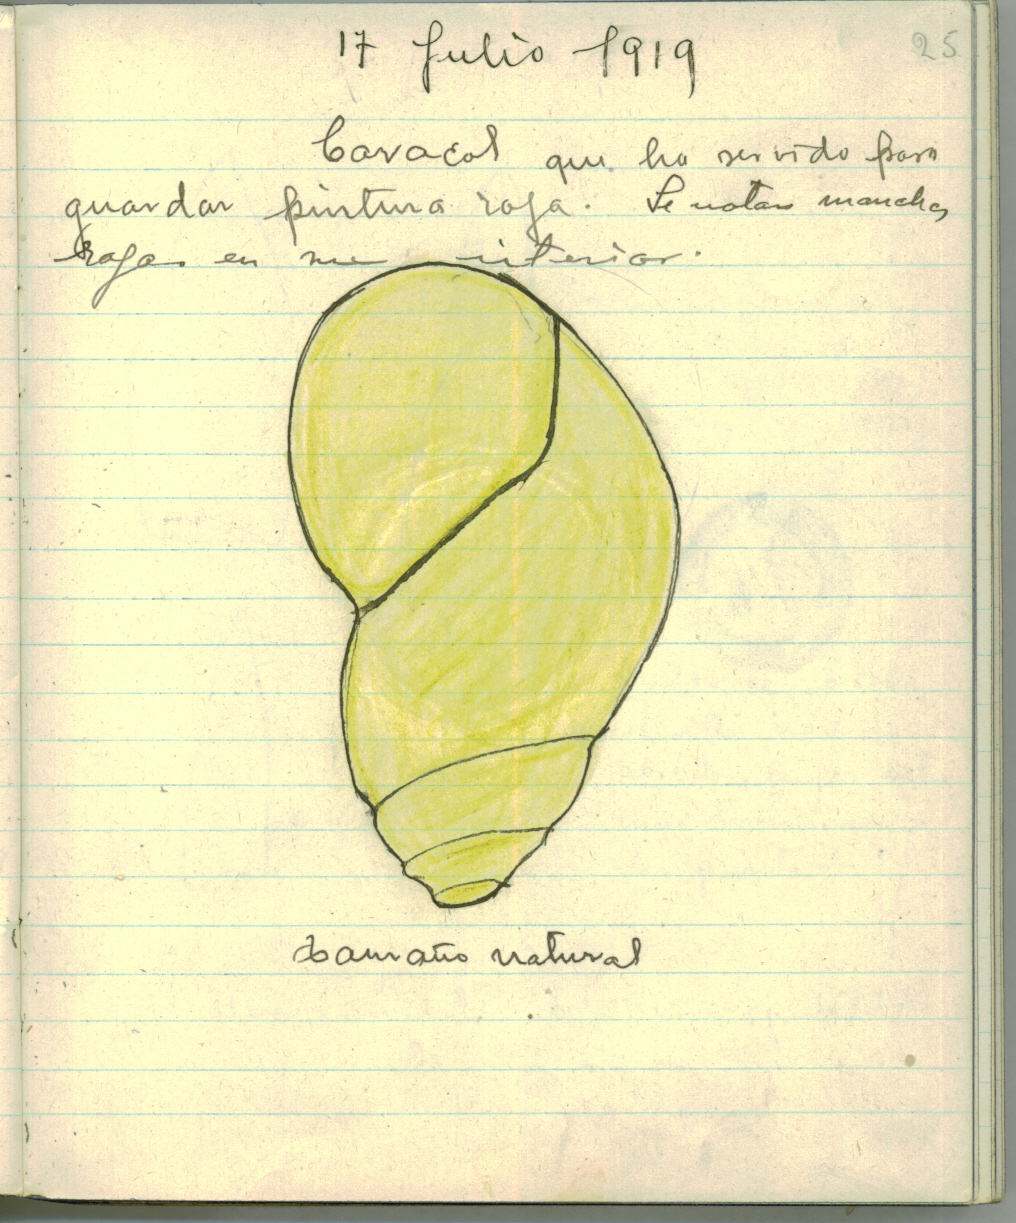 25
17 Julio 1919
Caracol que ha servido para
guardar pintura roja. Se notan manchas
rojas en su interior.
Tamaño natural